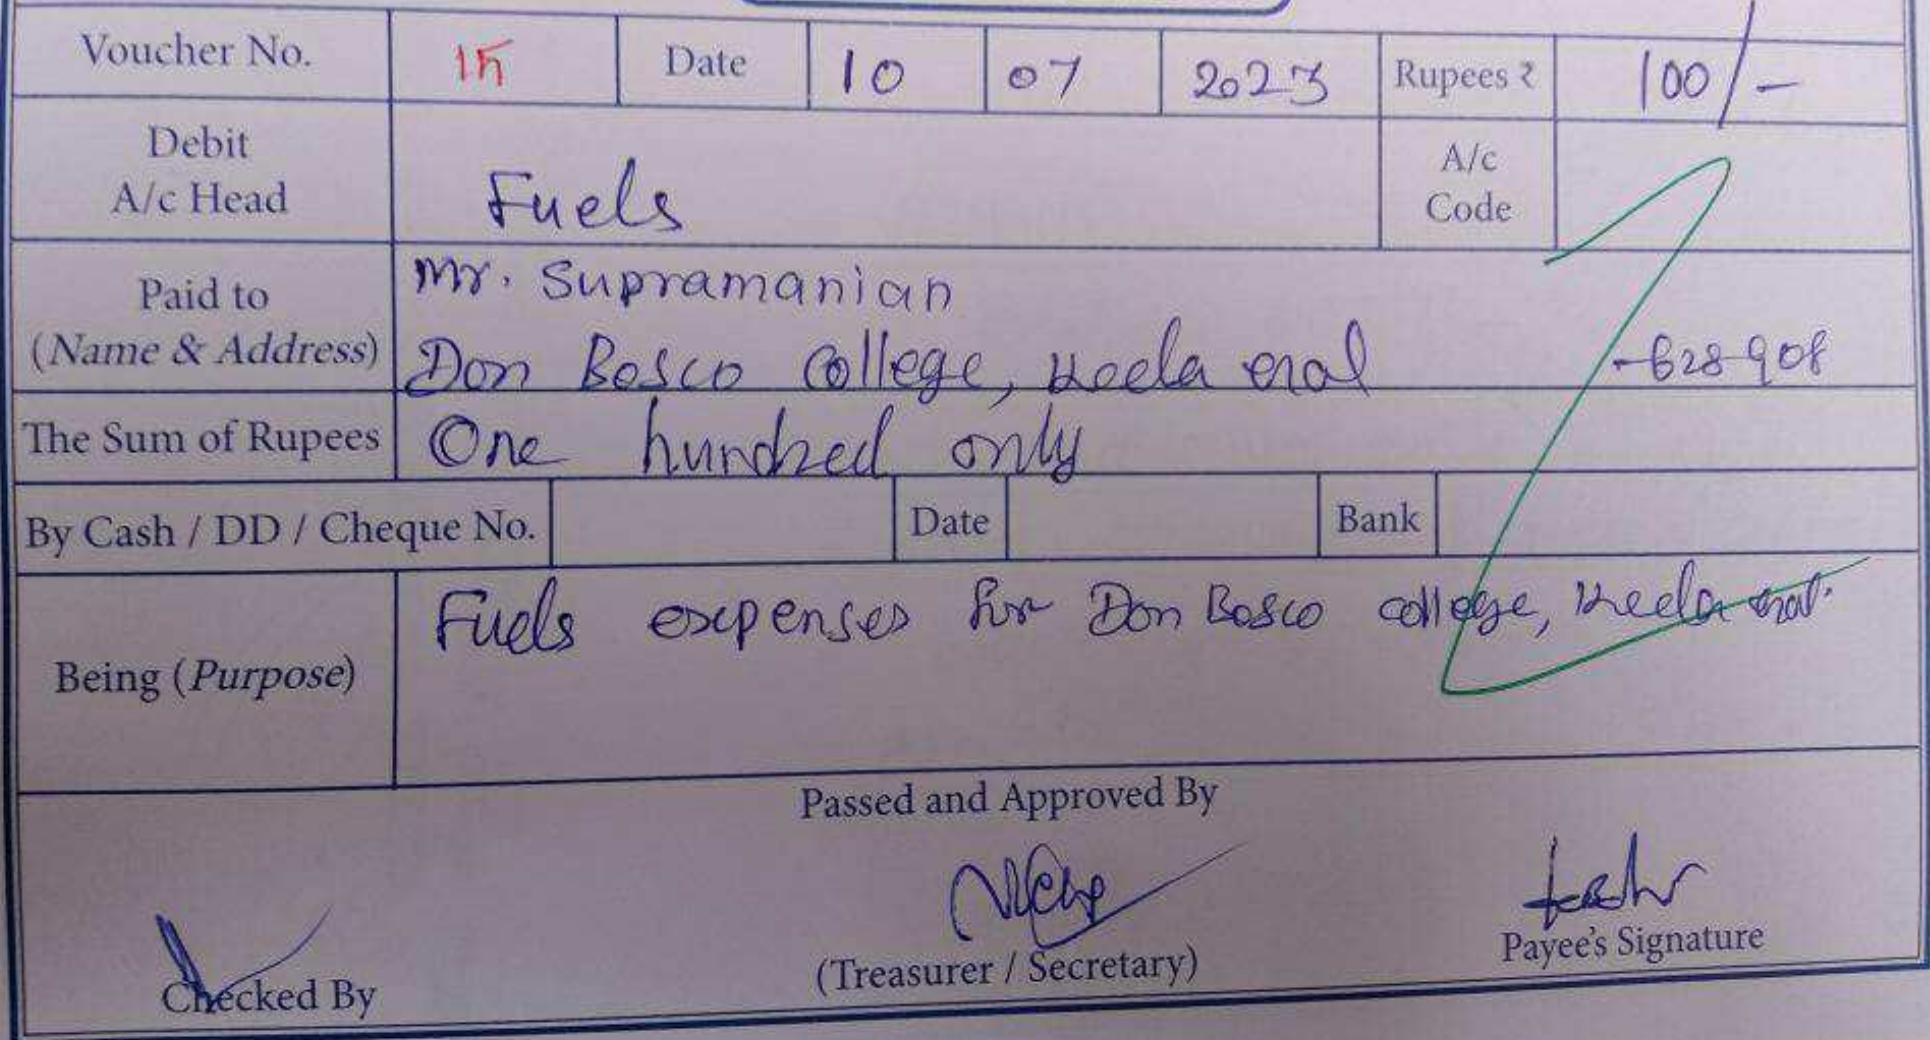 Voucher No. 15 Date 10 07 2023 Rupees ₹ 100/-
Debit A/c Head Fuels A/c Code
Paid to (Name & Address) Mr. Supramanian
Don Bosco College, Keela eral -628908
The Sum of Rupees One hundred only
By Cash / DD / Cheque No. Date Bank
Being (Purpose) Fuels expenses for Don Bosco college, Keela eral.
Passed and Approved By
Checked By (Treasurer / Secretary) Payee's Signature